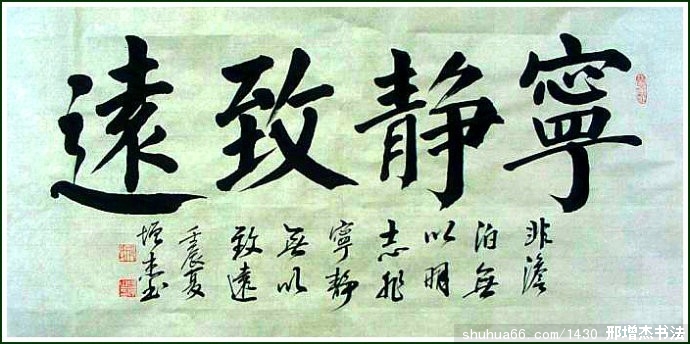 寧靜致遠
非澹
泊無
以明
志非
寧靜
無以
致遠
壬辰夏
增杰书
shuhua66.com/1430 邢增杰书法